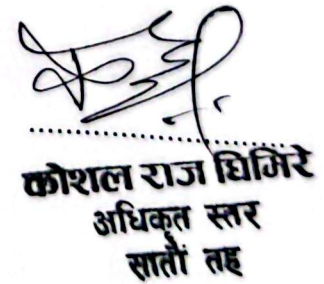 कोशल राज घिमिरे
अधिकृत स्तर
सातौं तह